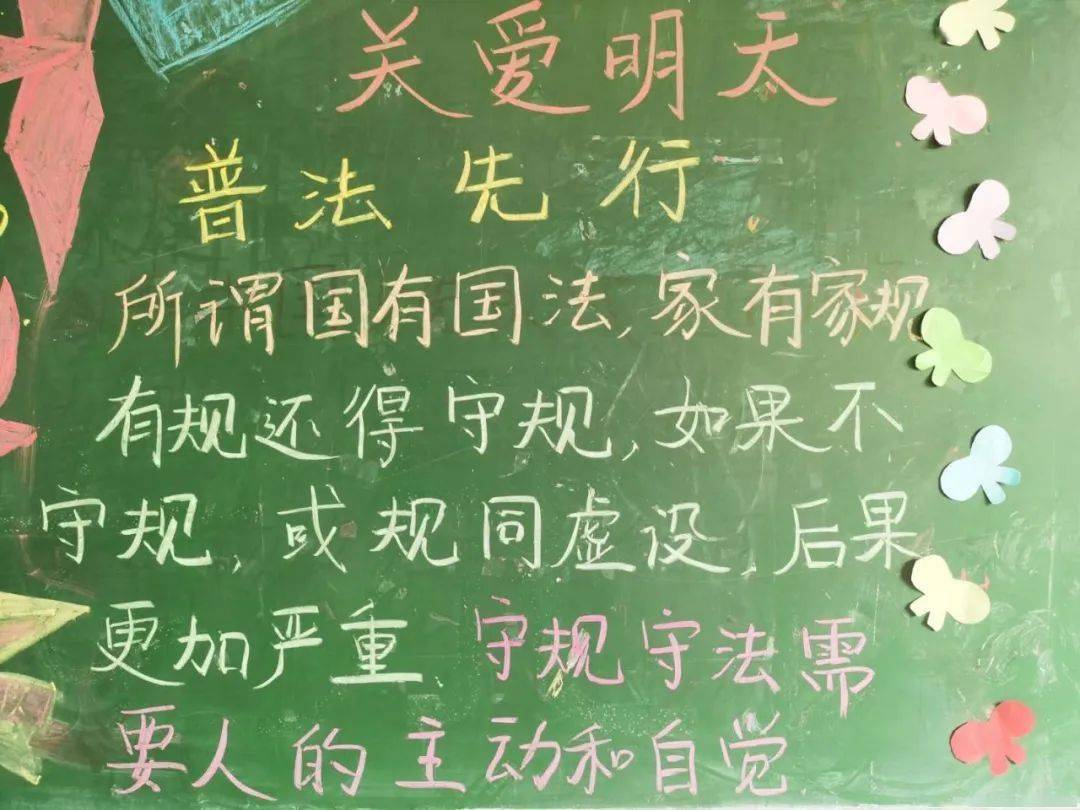 关爱明天
普法先行.
所谓国有国法,家有家规
有规还得守规,如果不
守规,或规同虚设,后果
更加严重.守规守法需
要人的主动和自觉